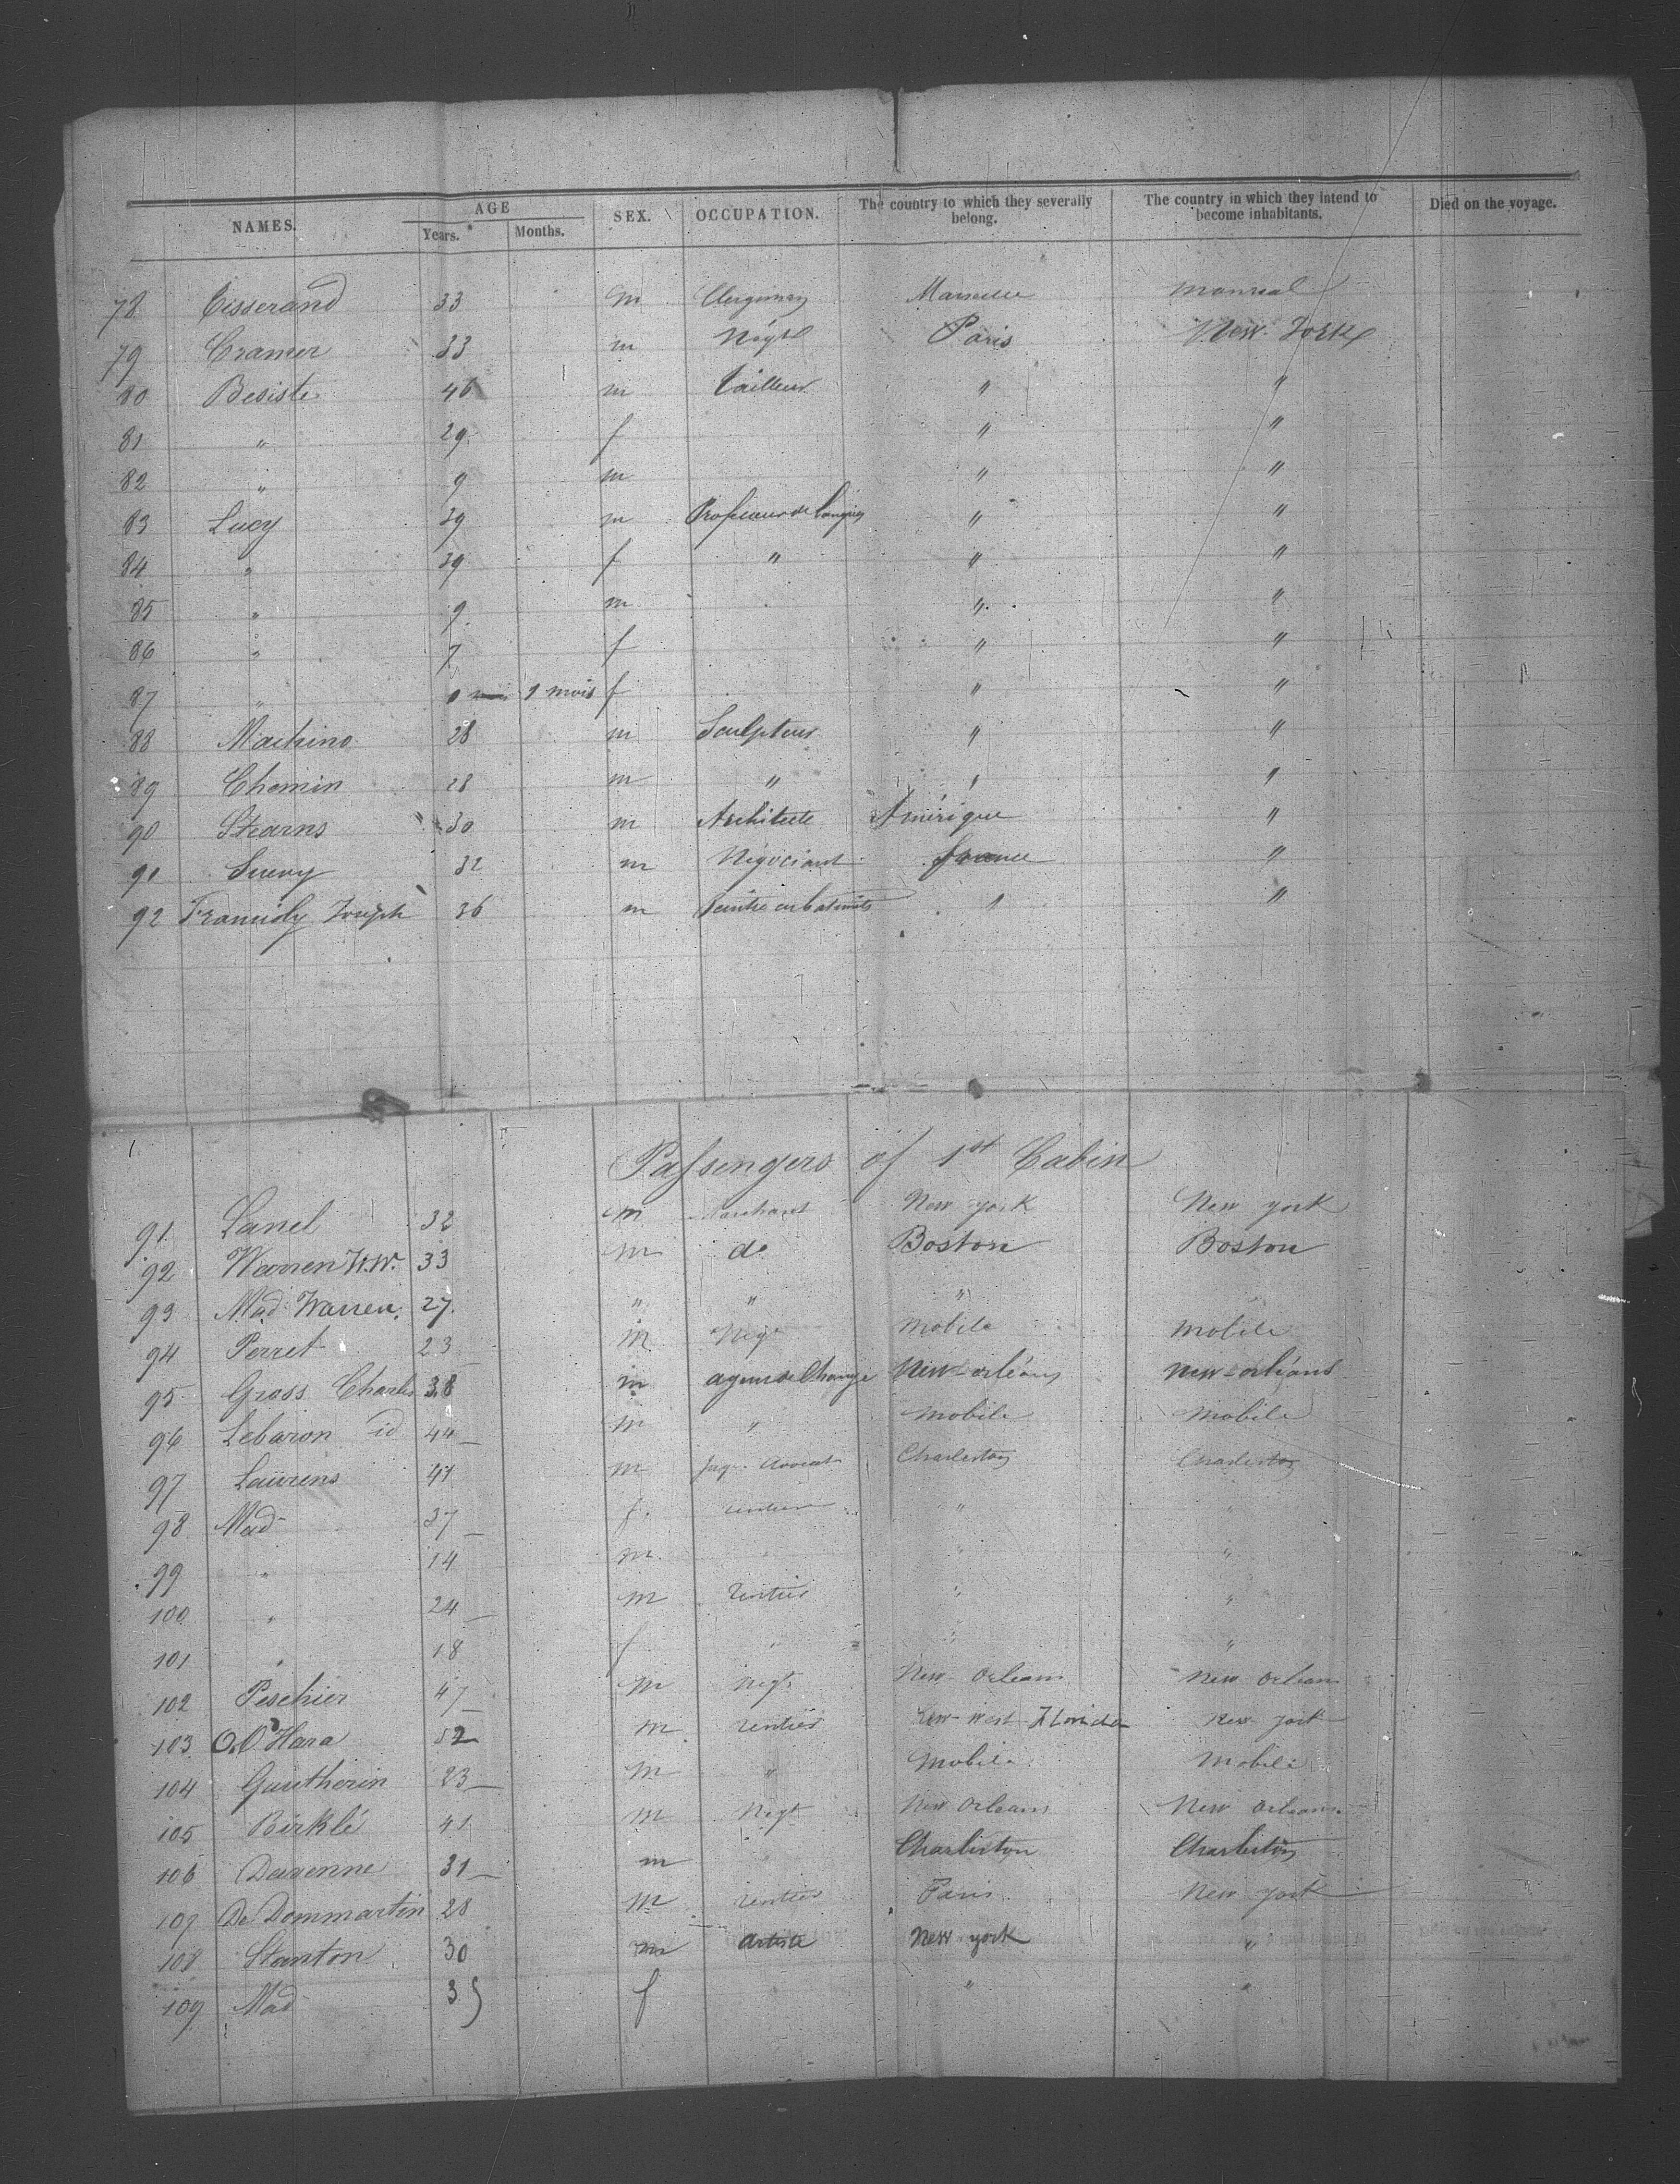 NAMES. AGE Years. Months. SEX. OCCUPATION. The country to which they severally belong. The country in which they intend to become inhabitants. Died on the voyage.
78 Tisserand 33 m Clergiman Marseille Monreal
79 Cramer 33 m Negt Paris New-York
80 Besiste 46 m tailleur " "
81 " 29 f " "
82 " 9 m " "
83 Lucy 39 m Professeur de langues " "
84 " 39 f " " "
85 " 9 m " "
86 " 7 f " "
87 " 9 mois f " "
88 Machino 28 m Sculpteur " "
89 Chemin 28 m " " "
90 Stearns 30 m Architecte Amérique "
91 32 m Négociant france "
92 Joseph 36 m Peintre en batiments " "
Passengers of 1st Cabin
91 Lanel 32 m Marchant New york New york
92 Warren W.W. 33 m do Boston Boston
93 Mad. Warren. 27. " " "
94 Perret 23 m Negt Mobile Mobile
95 Gross Charles 38 m agent de Change New-orléans New-orléans
96 Lebaron id 44 m " Mobile Mobile
97 Laurens 41 m Avocat Charleston Charleston
98 Mad 37 f. rentier " "
99 " 14 m " " "
100 " 24 m rentier " "
101 " 18 f " " "
102 Peschier 47 m Negt New-Orleans New Orleans
103 O.O'Hara 52 m rentier Key-west Florida New-york
104 Gautherin 23 m " Mobile Mobile
105 Birklé 41 m Negt New Orleans New Orleans
106 Davenne 31 m Charleston Charleston
107 De Dommartin 28 m rentier Paris New york
108 Stanton 30 m artiste New york "
109 Mad 35 f " "